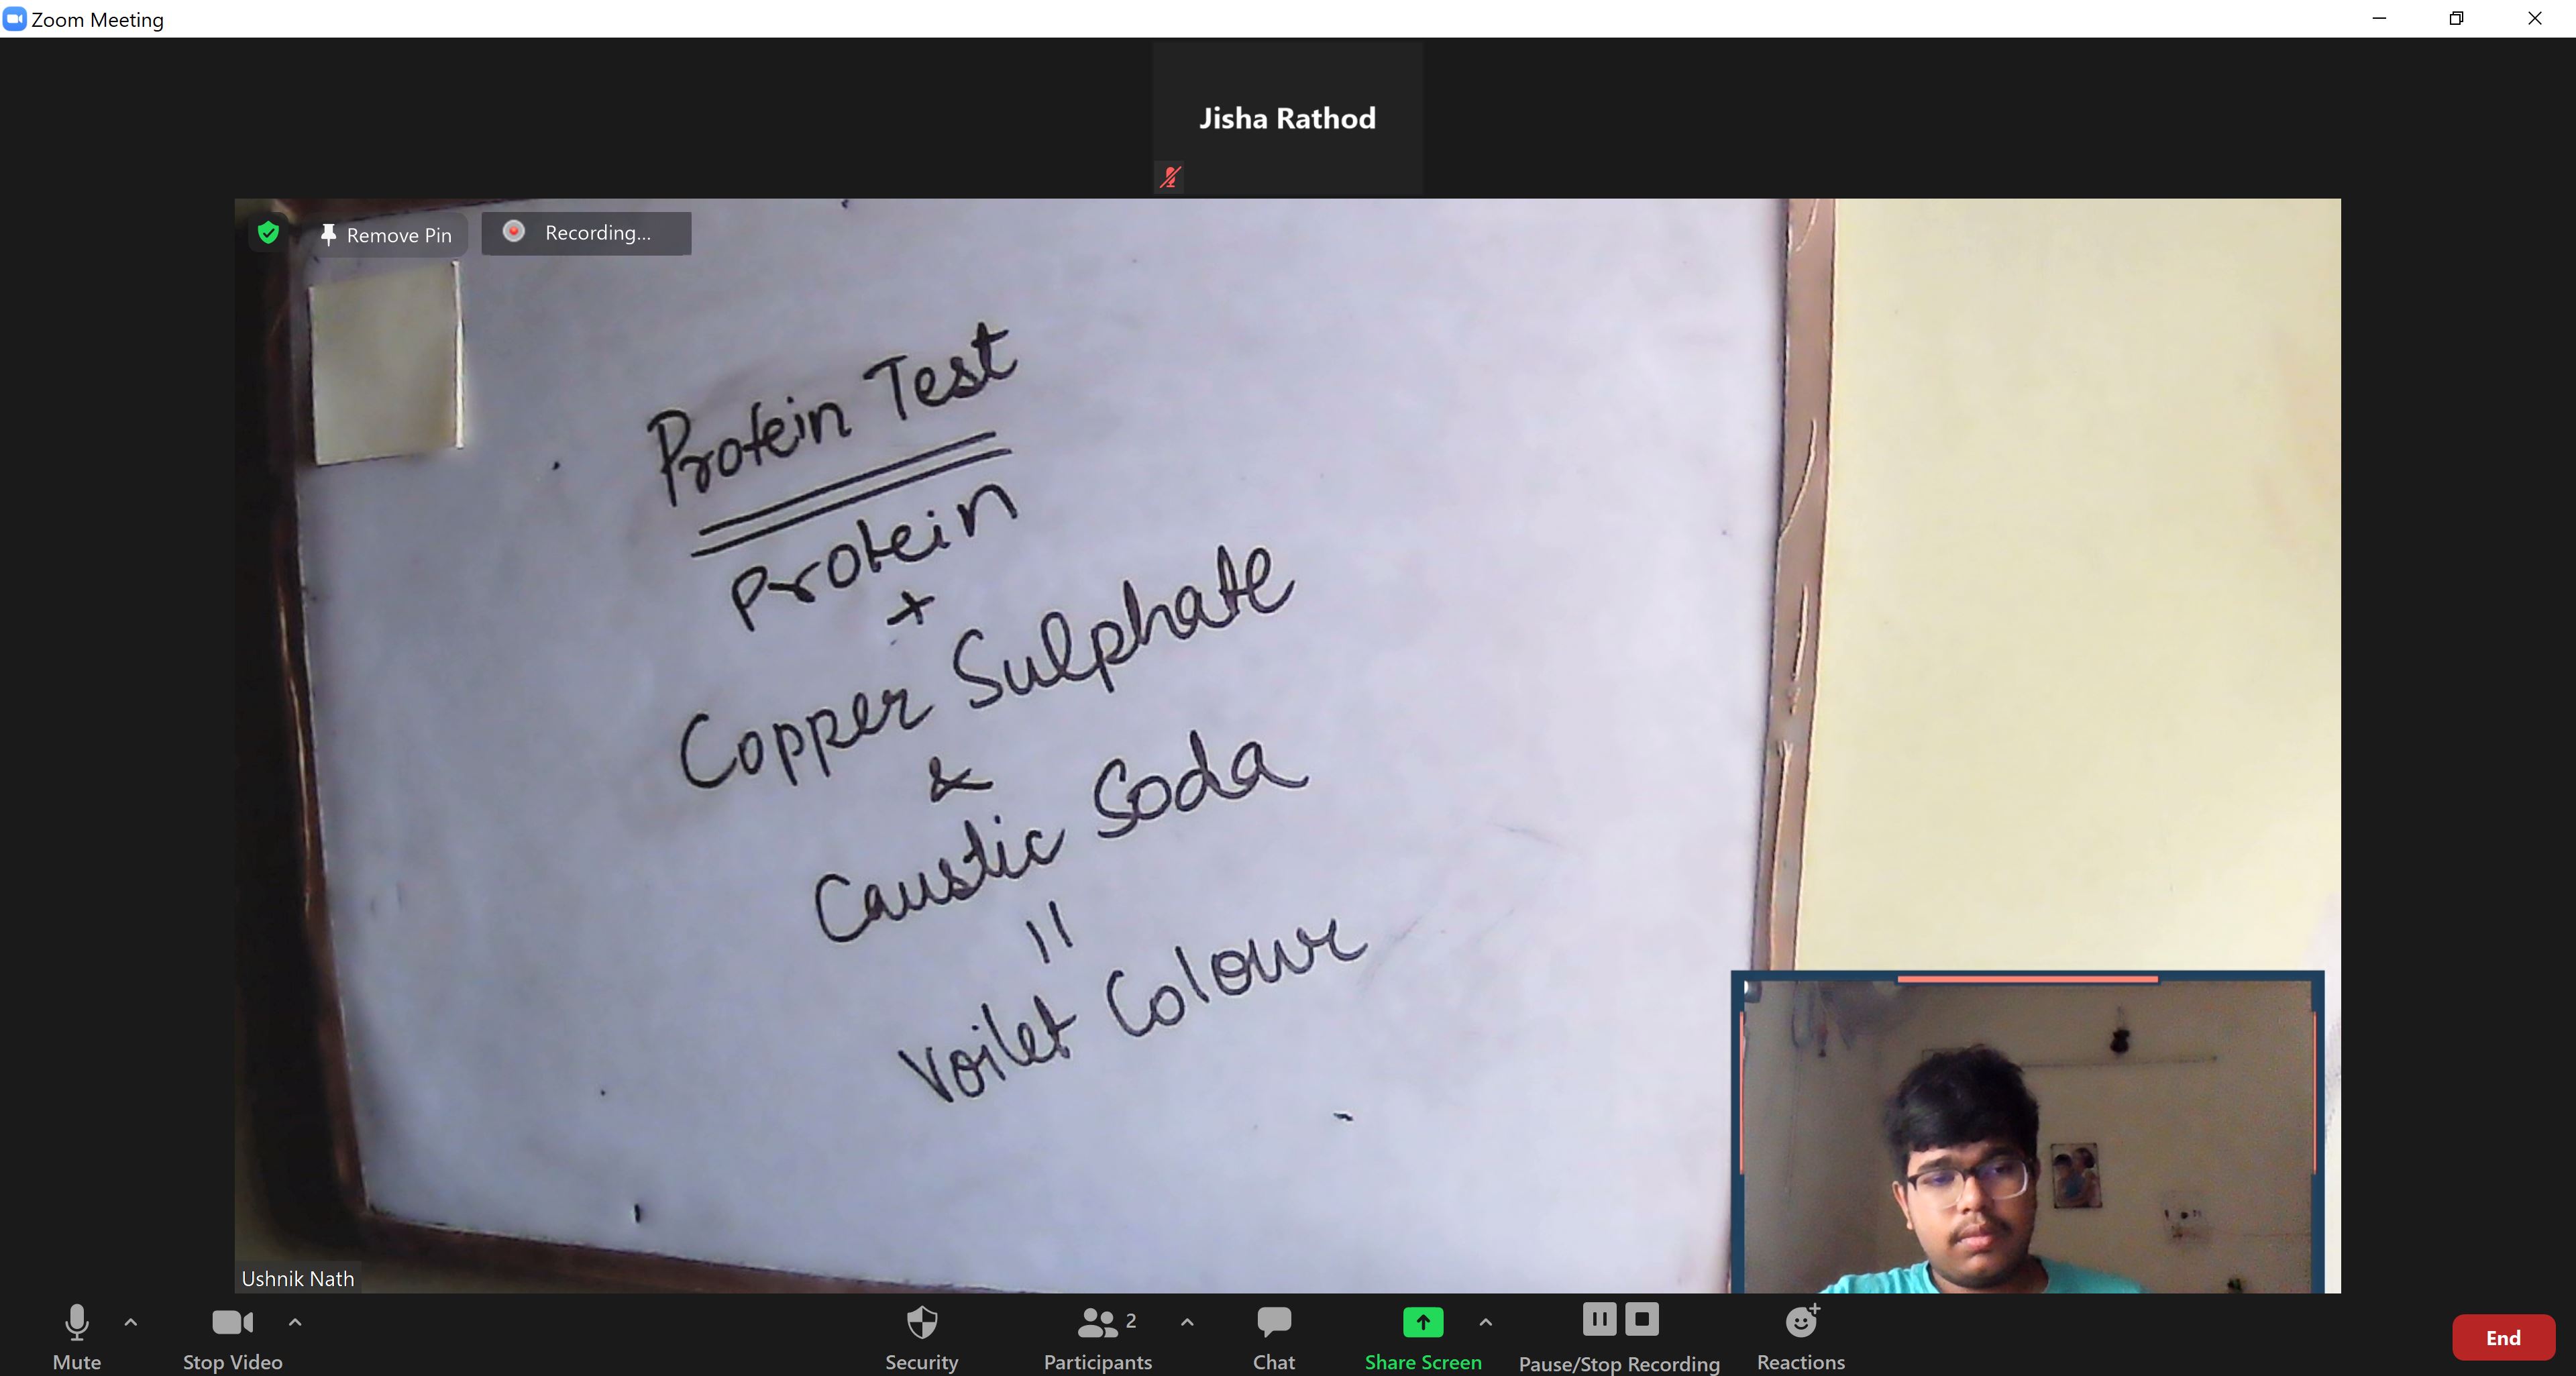 Zoom Meeting
Jisha Rathod
Remove Pin
Recording...
Protein Test
Protein
+
Copper Sulphate
&
Caustic Soda
=
Voilet Colour
Ushnik Nath
Mute
Stop Video
Security
2
Participants
Chat
Share Screen
Pause/Stop Recording
Reactions
End